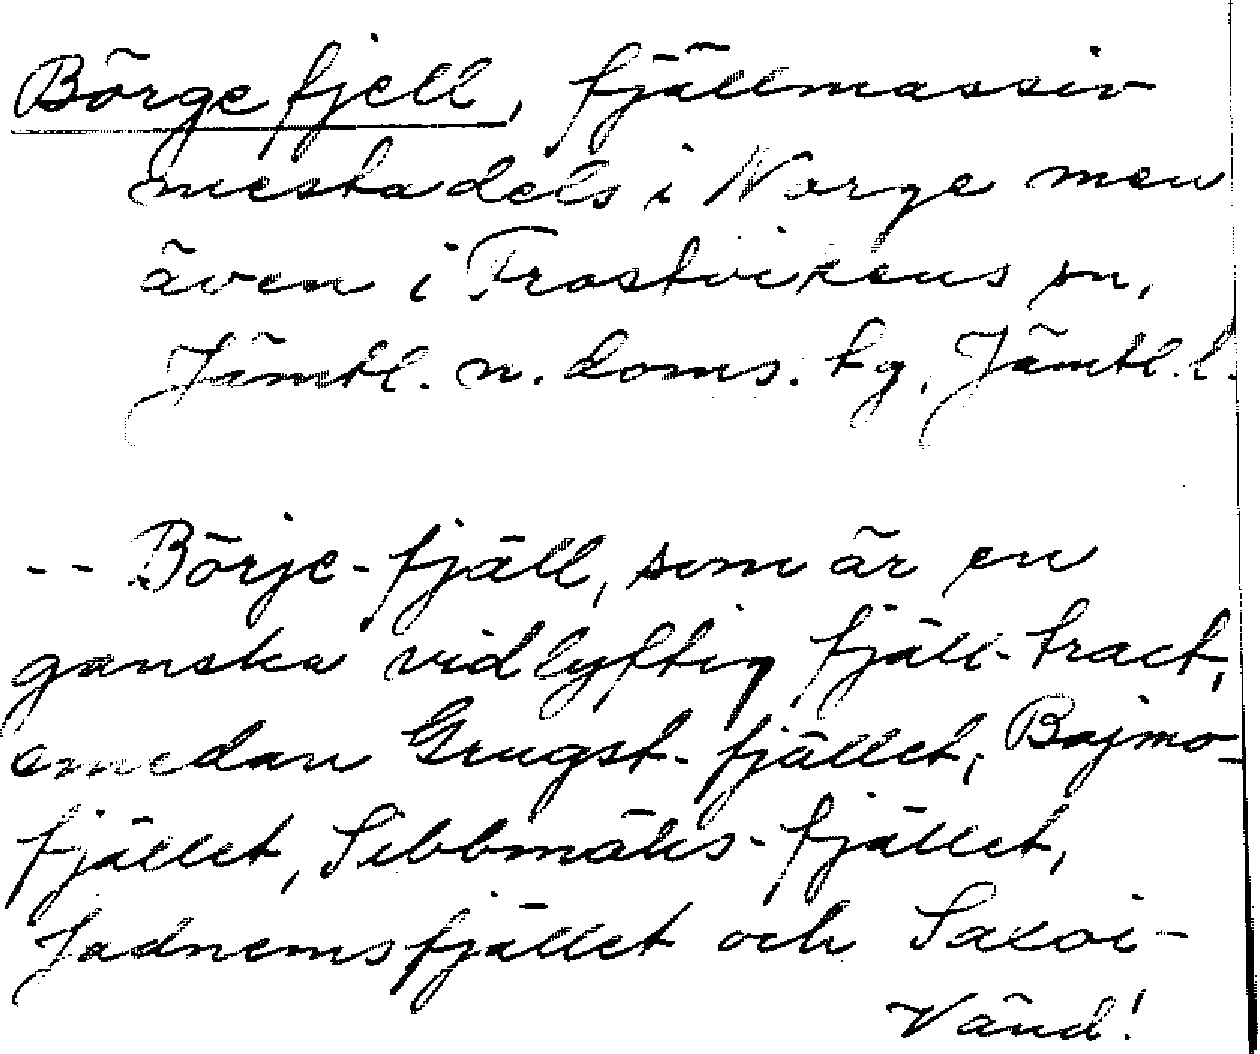 Börgefjell, fjällmassiv
mestadels i Norge men
även i Frostvikens sn,
Jämtl. n. doms. tg, Jämtl. l.
-- Börje-fjäll, som är en
ganska vidlyftig fjäll-tract,
emedan Grugst-fjället, Bajmo-
fjället, Sibbmäks-fjället,
Jadnemsfjället och Saxoi-
Vänd!